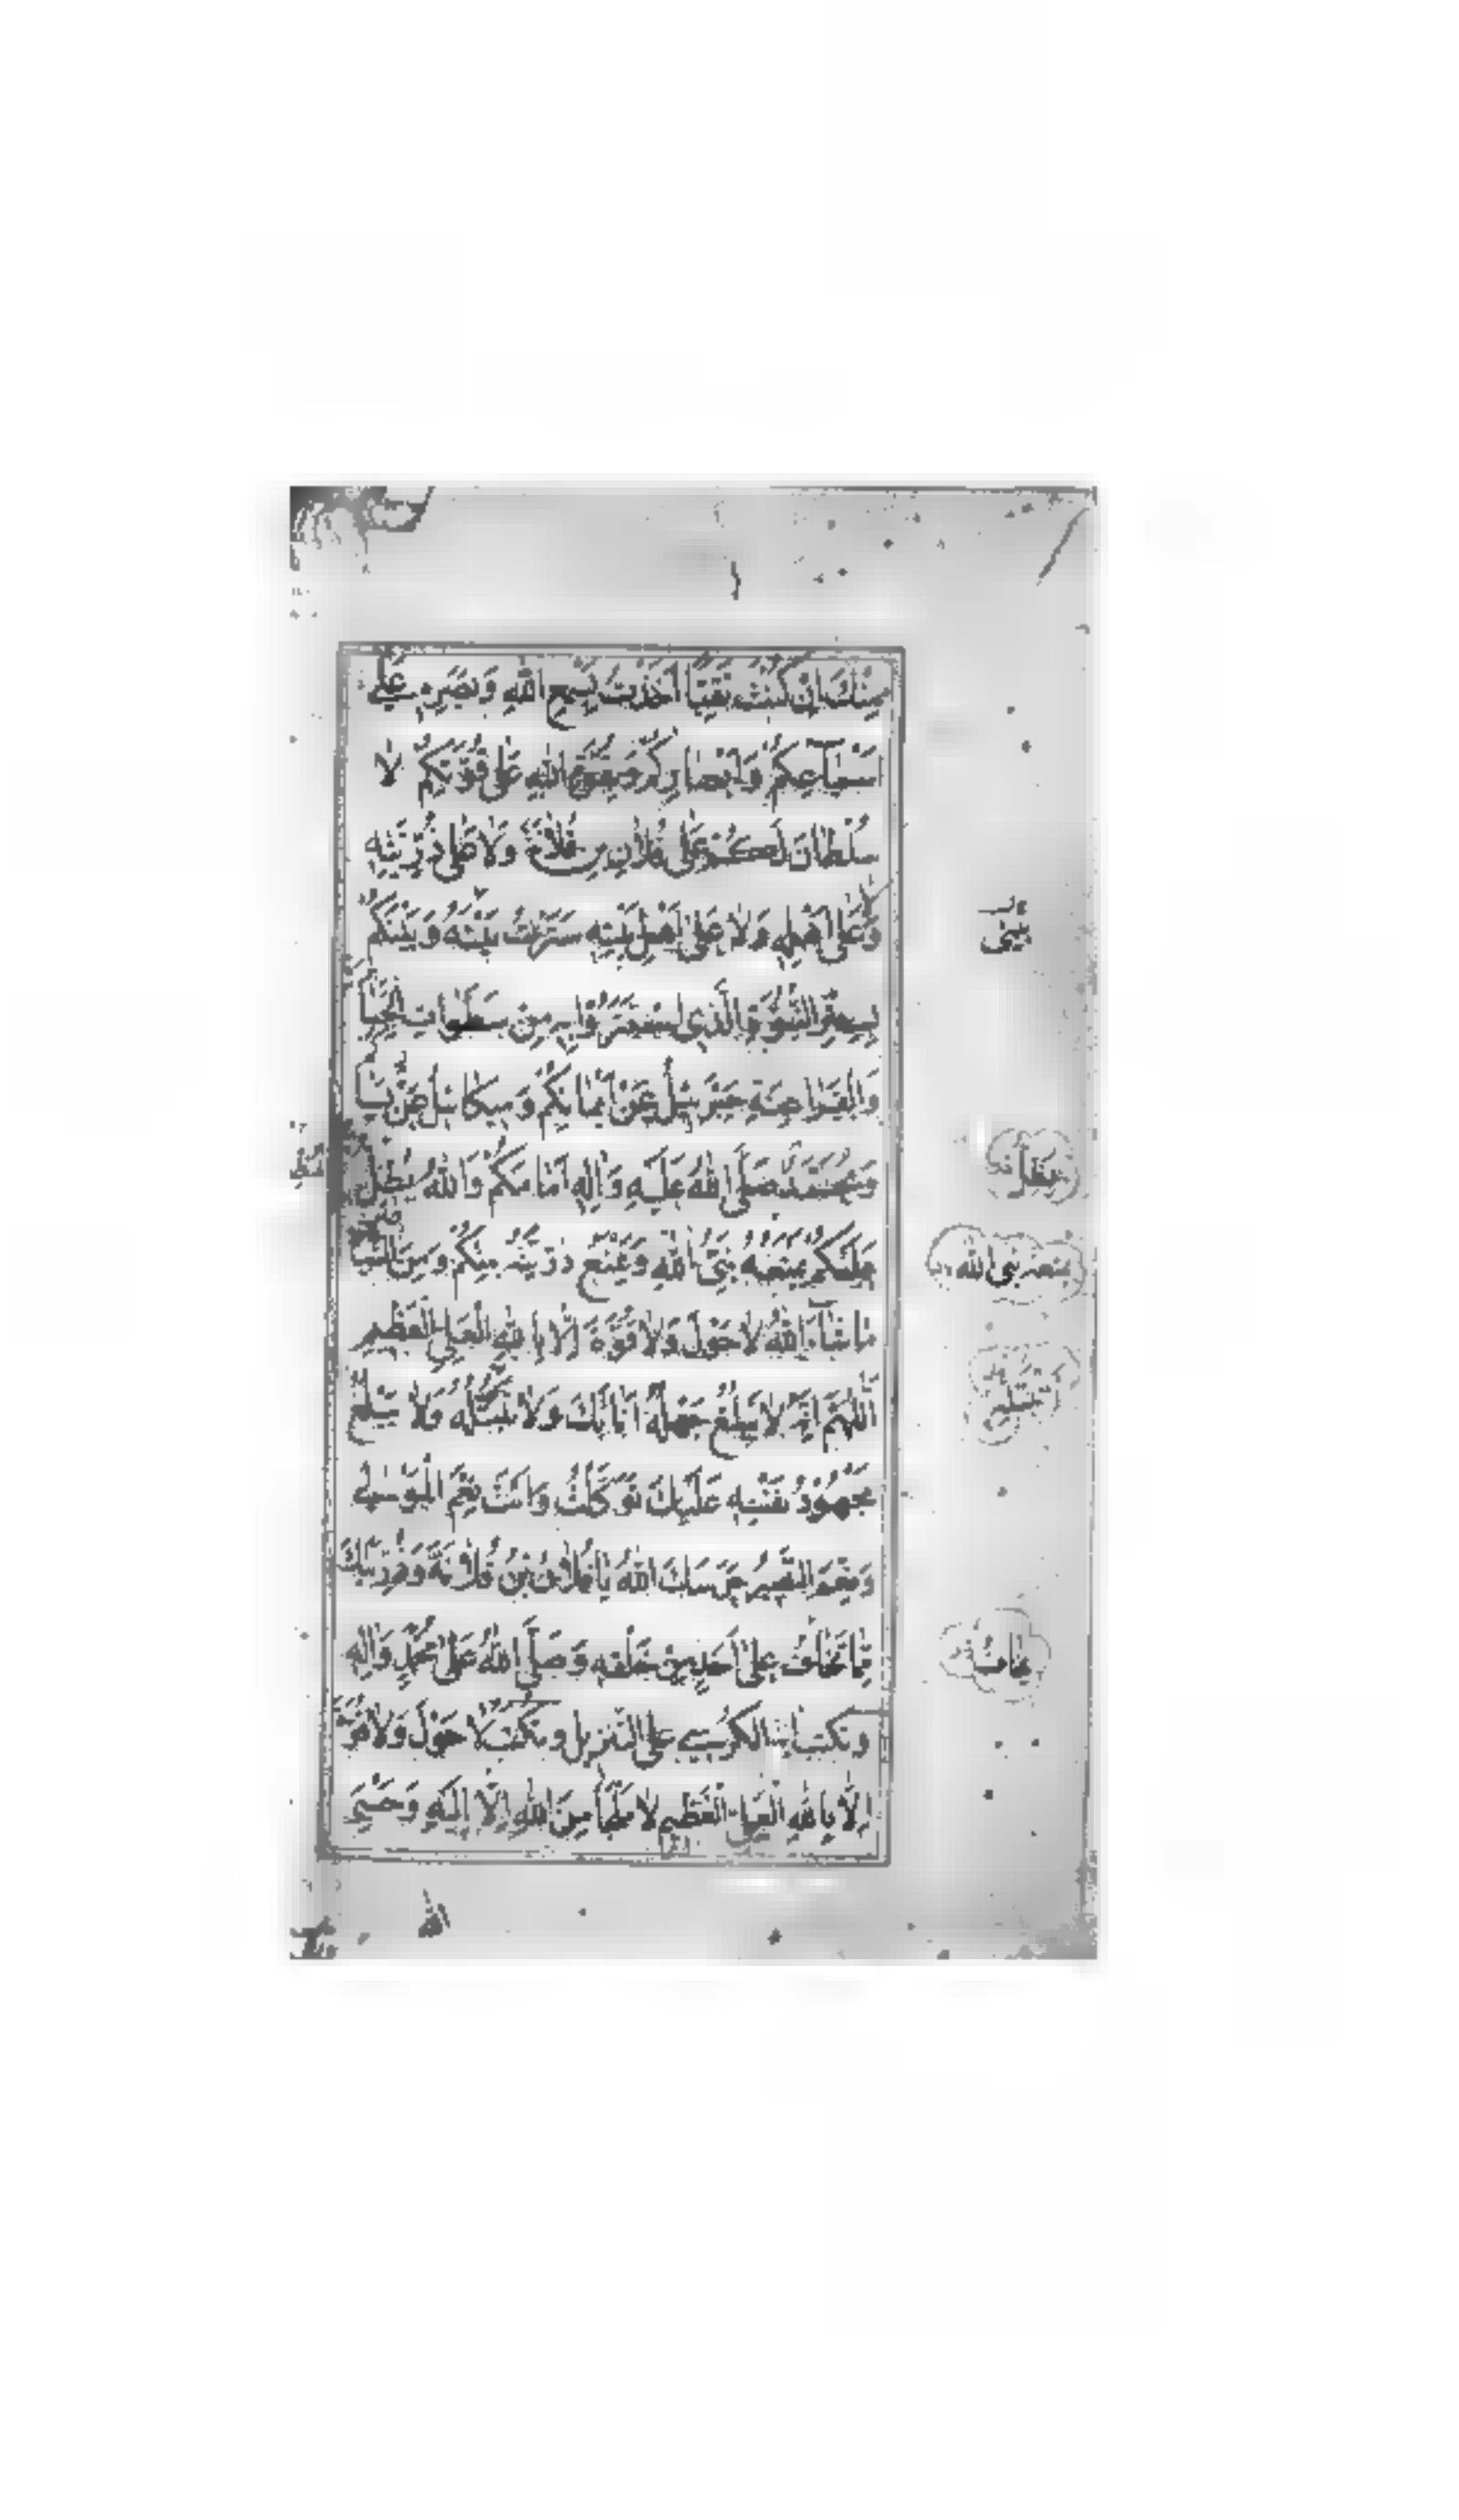 مِنْكَ اِنْ كُنْتَ تَقِيًّا اَخَذْتُ بِسَمْعِ اللهِ وَبَصَرِهِ عَلَى
اَسْمَاعِكُمْ وَاَبْصَارِكُمْ وَبِقُوَّةِ اللهِ عَلَى قُوَّتِكُمْ لَا
سُلْطَانَ لَكُمْ عَلَى فُلَانِ بْنِ فُلَانَةَ وَلَا عَلَى ذُرِّيَّتِهِ
وَعَلَى اَهْلِهِ وَلَا عَلَى اَهْلِ بَيْتِهِ سَتَرْتُ بَيْنَهُ وَبَيْنَكُمْ
بِسِتْرِ النُّبُوَّةِ الَّذِي اسْتَتَرُوْا بِهِ مِنْ سَطَوَاتِ
وَالْفَرَاعِنَةِ جَبْرَئِيلُ عَنْ اَيْمَانِكُمْ وَمِيكَائِيلُ عَنْ
وَمُحَمَّدٌ صَلَّى اللهُ عَلَيْهِ وَاٰلِهِ اَمَامَكُمْ وَاللهُ يُطِلُّ
عَلَيْكُمْ يَمْنَعُهُ نَبِيُّ اللهِ وَيَمْنَعُ ذُرِّيَّتَهُ مِنْكُمْ وَمِنَ
مَا شَاءَ اللهُ لَا حَوْلَ وَلَا قُوَّةَ اِلَّا بِاللهِ الْعَلِيِّ الْعَظِيمِ
اَللّٰهُمَّ اِنَّهُ لَا يَبْلُغُ جَهْلُهُ اَنَاتَكَ وَلَا يَبْتَلِهِ وَلَا يَبْلُغُ
مَجْهُوْدُ نَفْسِهِ عَلَيْكَ تَوَكَّلْتُ وَاَنْتَ نِعْمَ الْمَوْلٰى
وَنِعْمَ النَّصِيرُ حَرَسَكَ اللهُ يَا فُلَانَ بْنَ فُلَانَةَ وَذُرِّيَّتَكَ
مِمَّا تَخَافُ عَلَى اَحَدٍ مِنْ خَلْقِهِ وَصَلَّى اللهُ عَلَى مُحَمَّدٍ وَاٰلِهِ
وتكتب اية الكرسي على التنزيل وتكتب لَا حَوْلَ وَلَا قُوَّةَ
اِلَّا بِاللهِ الْعَلِيِّ الْعَظِيمِ لَا مَلْجَأَ مِنَ اللهِ اِلَّا اِلَيْهِ وَحَسْبِيَ
الله
يمنعه نبى الله